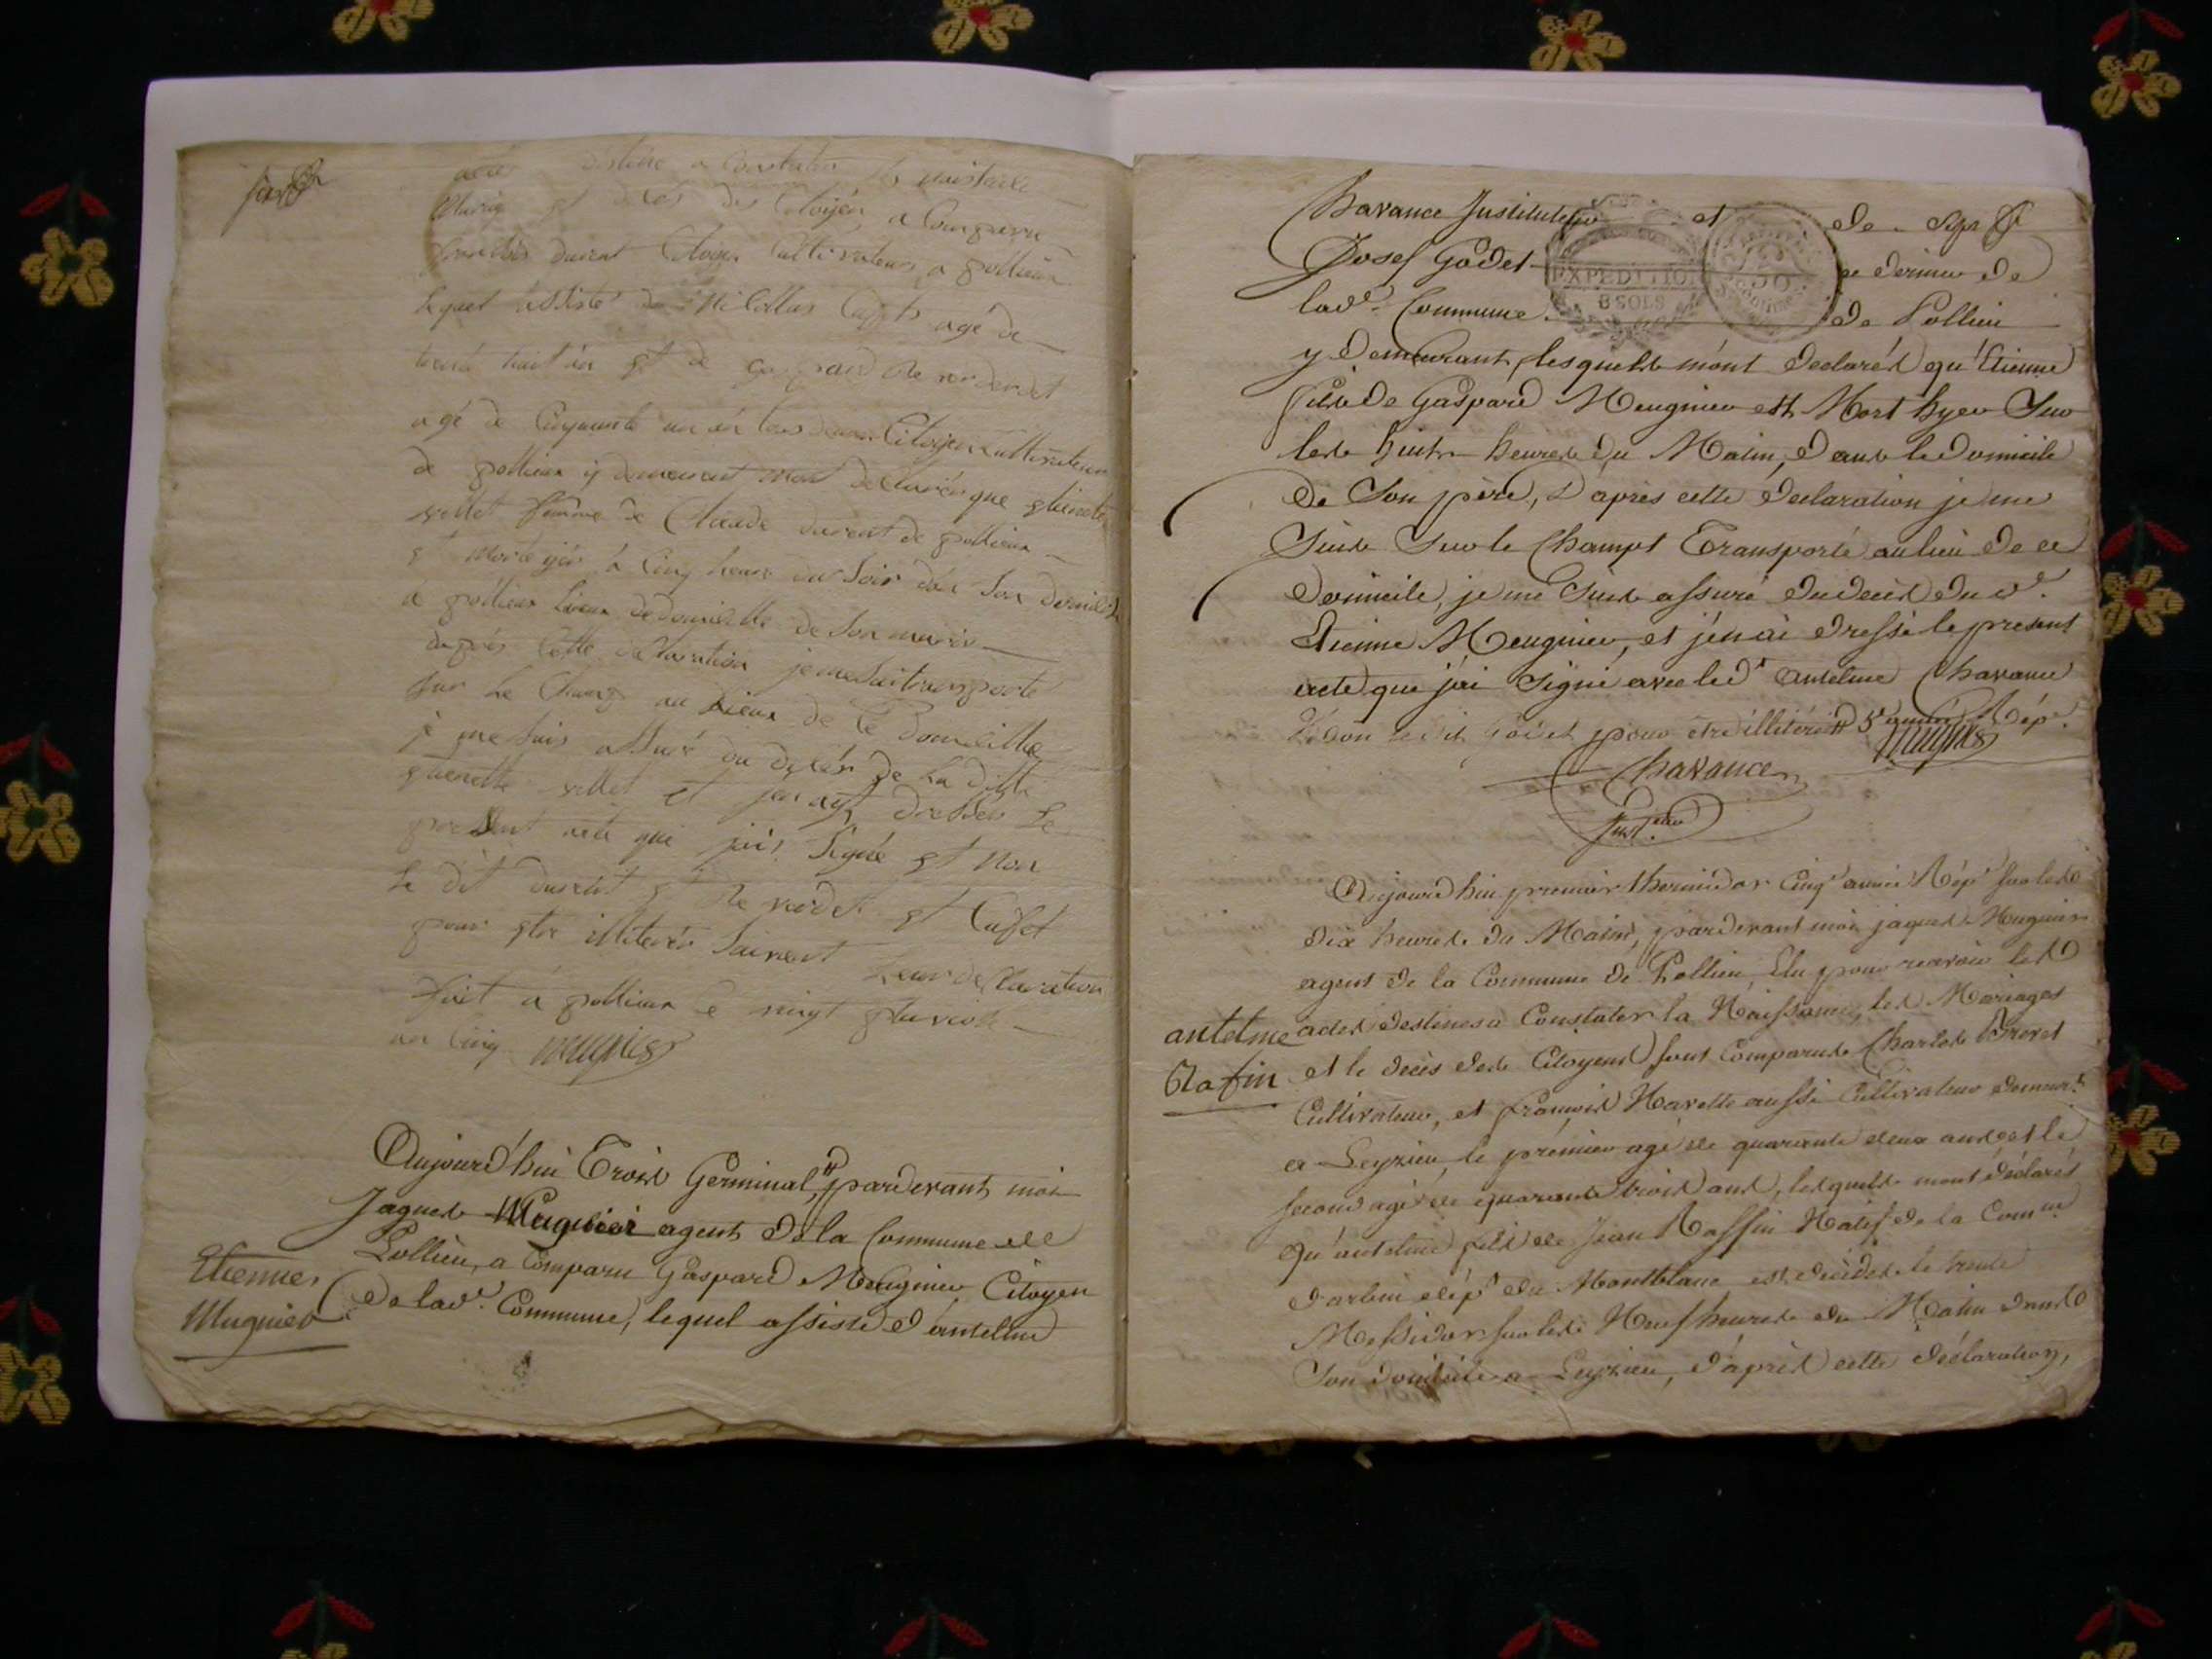 acte destiné a Constater les naissance
Mariage et décés des Citoyén a Comparu
durent Citoyen Cultivateur a pollieux
lequel assisté de Nicollas Cusset agé de
trente huit én et de gaspard
agé de Cinquante un én tous deux Citoyen Cultivateur
de pollieux y demeurant mont declarés que
vellet femme de Claude durent de pollieux
et morte yér à Cinq heure du Soir dan Son
a pollieux Lieux dedomicille de Son maris
daprés Cette declaration jemesuitransporté
Sur Le Champ au Lieux de Ce Domicille
je me suis assuré du decés de La ditte
vellet et jen ay dressés Le
present acte que jais Signé et Non
Le dit durent et et Cusset
pour etre illiterés Suivent Leur declaration
fait a pollieux e vingt pluviose
an Cinq mugnier
Aujourd'hui Troist Germinal, pardevant moi
Jaquest Mugnier agent de la Commune de
Pollieu, a Comparu Gaspard Meugnier Citoyen
Etienne
Mugnier
de lade. Commune, lequel assisté d'antelme
Chavance Instituteur et de
Josef Godet
lade. Commune de Pollieu
y demeurant, lesquelst m'ont declarést qu'Etienne
filst de Gaspard Meugnier est Mort hyer Sur
lest huit heurest du Matin, danst le domicile
de Son père, D'après cette déclaration je me
Suist Sur le Champt Transporté au lieu de ce
domicile, je me Suist assuré du decès du d.
Etienne Meugnier, et j'en ai dressé le present
acte que j'ai Signé avec led. antelme Chavance
Non ledit Godet pour etre illitéré Rép.
mugnier
Chavance
Inst.teur
Aujourd'hui premier thermidor Cinq.e année Rép.e Sur lest
dix heurest du Matin, pardevant moi jaquest Mugnier
agent de la Commune de Pollieu, Elu pour recevoir lest
actest destinés a Constater la Naissance, lest Mariages
antelme
Rafin
et le decès dest Citoyenst sont Comparust Charlest Brevet
Cultivateur, et françoist Navette aussi Cultivateur demeur.t
a Leyzieu, le premier agé de quarante deux anst et le
second agé de quarante troist anst, lesquelst mont déclarést
qu'antelme filst de Jean Raffin Natif de la Com.ne
d'arbin dép.t du Montblanc est décédé le trente
Messidor sur lest Neuf heurest du Matin danst
Son domicile a Leyzieu, d'aprèst cette déclaration,
EXPEDITION
8 SOLS